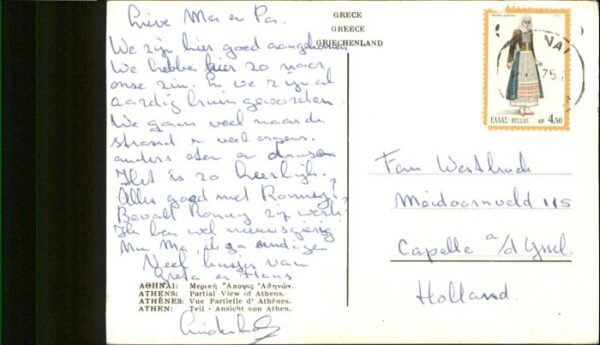 Lieve Ma en Pa.
We zijn hier goed aangekomen
We hebben hier zo naar
onze zin. En we zijn al
aardig bruin geworden.
We gaan veel naar de
strand en veel ergens
anders eten en drinken
Het is zo heerlijk.
Alles goed met Ronney?
Bevalt Ronney zijn werk?
Ik ben wel nieuwsgierig
Nu Ma, ik ga eindigen
Veel kusjes van
Greta en Hans
GRÈCE
GREECE
GRIECHENLAND
ΑΘΗΝΑΙ: Μερικὴ Ἄποψις Ἀθηνῶν.
ATHENS: Partial View of Athens.
ATHÈNES: Vue Partielle d'Athènes.
ATHEN: Teil - Ansicht von Athen.
ΕΛΛΑΣ-HELLAS ΔΡ 4,50
ΝΑΙ
75
Fam Westhoek
Meidoornveld 115
Capelle a/d Yssel.
Holland.